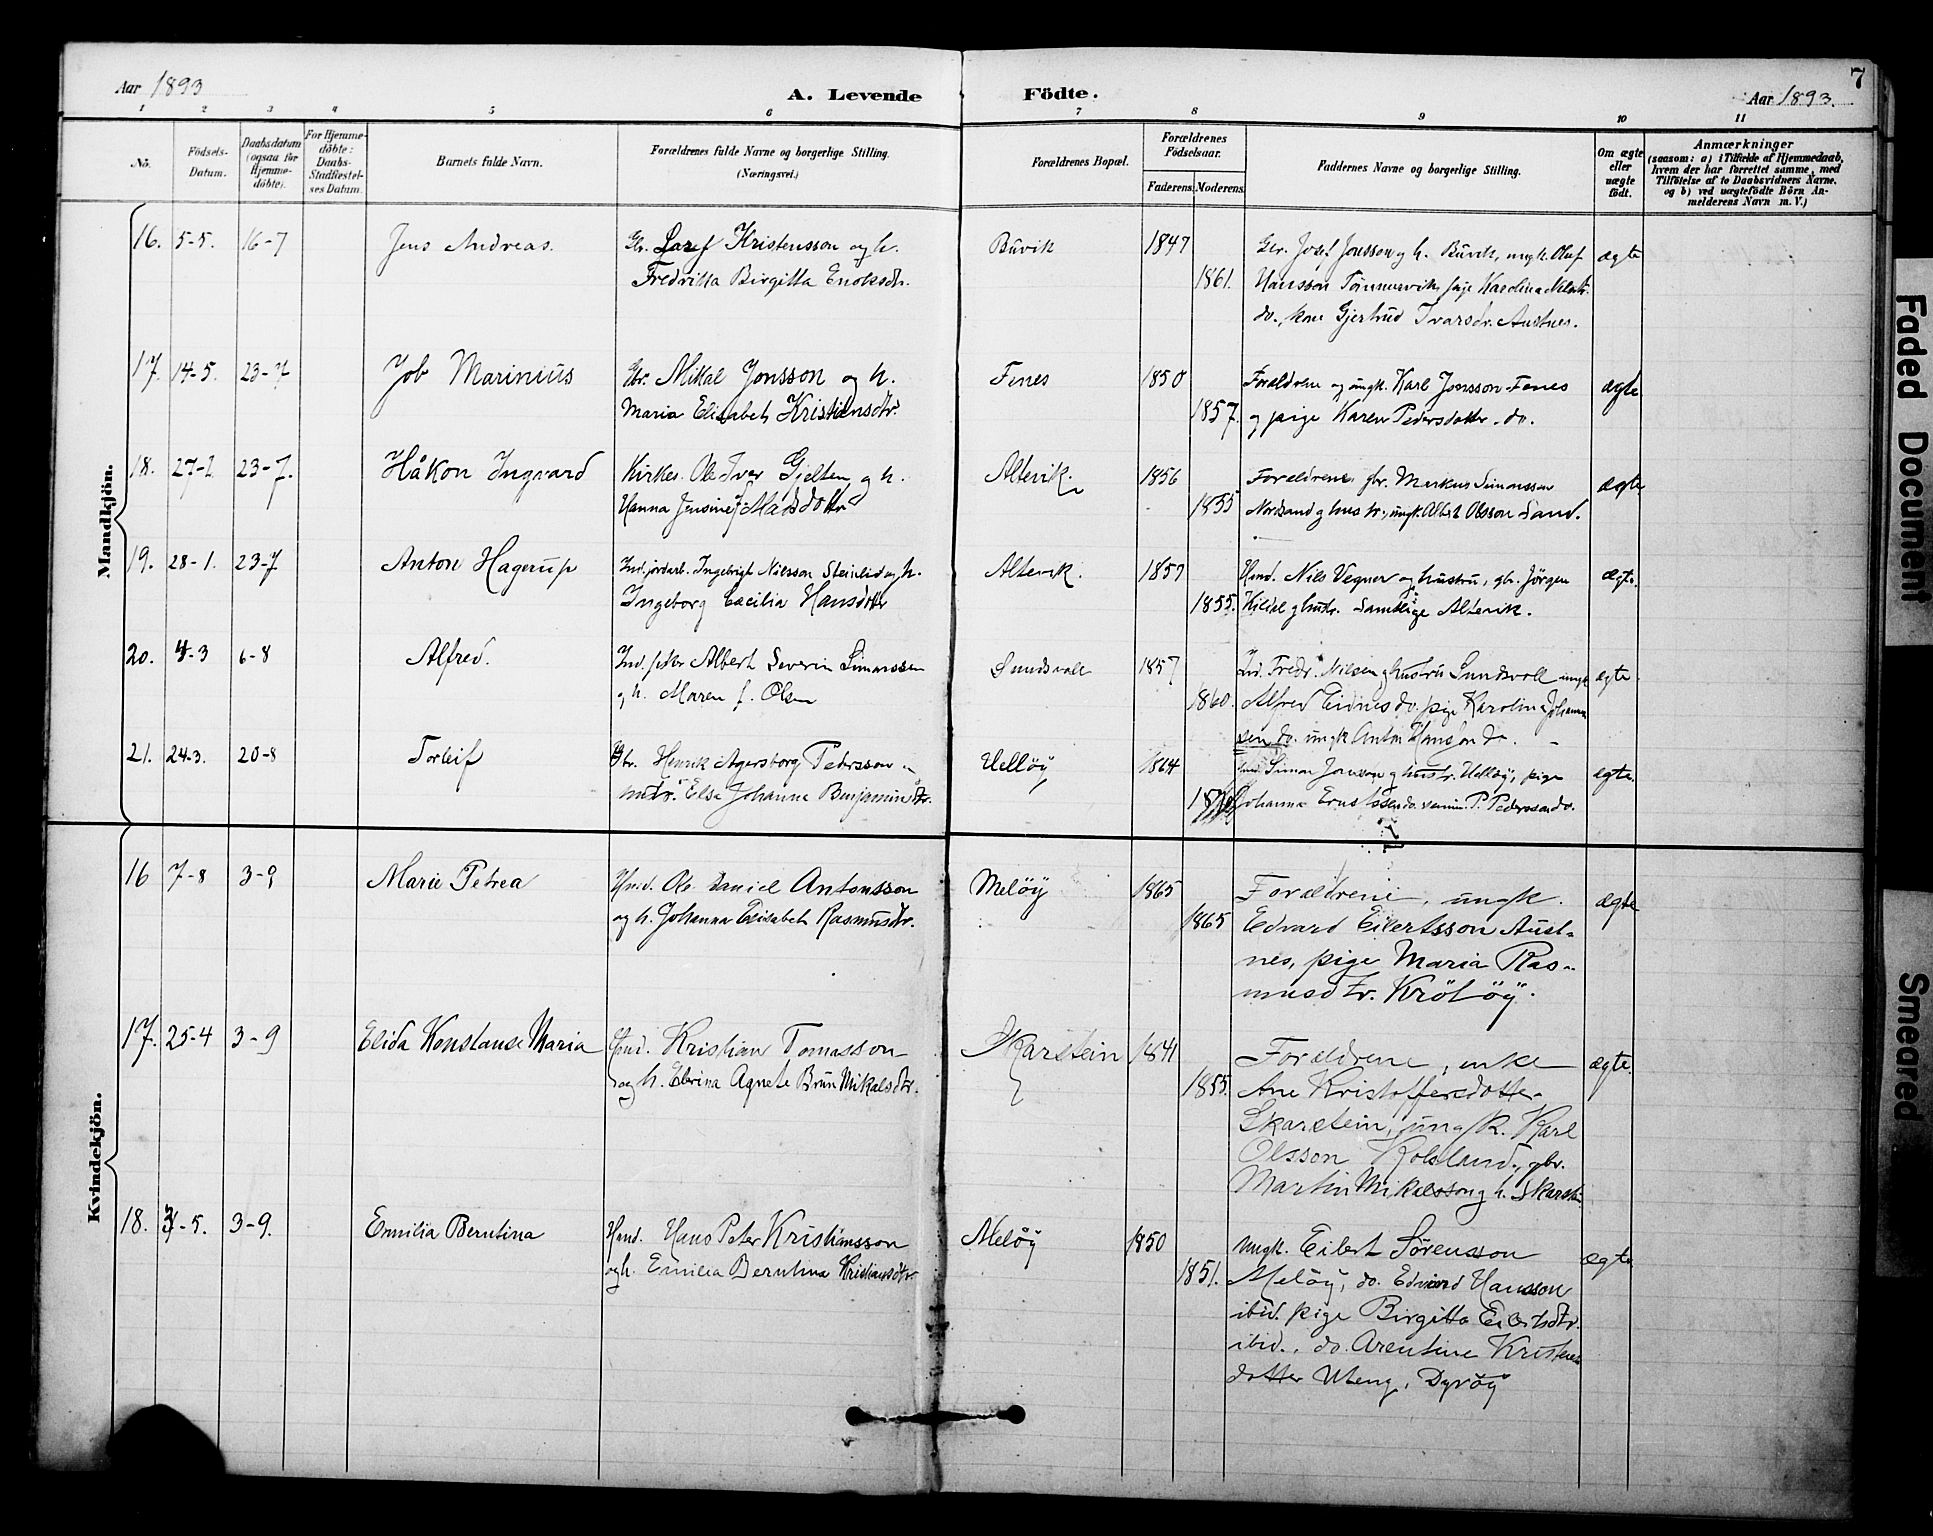 Aar 1893
A. Levende
Födte.
Aar 1893.
7
1 2 3 4 5 6 7 8 9 10 11
No.
Födsels-
Datum.
Daabsdatum
(ogsaa for
Hjemme-
döbte).
For Hjemme-
döbte:
Daabs-
Stadfæstel-
ses Datum.
Barnets fulde Navn.
Forældrenes fulde Navne og borgerlige Stilling.
(Næringsvei.)
Forældrenes Bopæl.
Forældrenes
Födselsaar.
Faderens. Moderens.
Faddernes Navne og borgerlige Stilling.
Om ægte
eller
uægte
födt.
Anmærkninger
(saasom: a) i Tilfælde af Hjemmedaab,
hvem der har forrettet samme, med
Tilföielse af to Daabsvidners Navne,
og b) ved uægtefödte Börn An-
melderens Navn m. V.)
Mandkjön.
16. 5-5. 16-7 Jens Andreas. Kristensson og h. Buvik 1847 Gbr. Josef Jonsson og h. Buvik, ungk. Oluf ægte
Fredrikka Birgitta Enoksdtr. 1861. Hansson pige
do., kone Gjertrud Ivarsdr. Austnes.
17. 14-5. 23-7 Job Marinius Gbr. Mikal Jonsson og h. Fenes 1850 Forældrene og ungk. Karl Jonsson Fenes ægte
Maria Elisabet Kristiansdtr. 1857. og pige Karen Pedersdotter do.
18. 23-7. Håkon Ingvard Kirkes. Ole Iver Gjelten og h. Altervik. 1856 Forældrene, gbr. Markus Simonsson ægte
Hanna Jensine Madsdottr 1855 Nordsand og hustr., ungk. Albert Olsson Sand.
19. 28-1. 23-7 Anton Hagerup Ind. jordarb. Ingebrigt Nilsson Steinlid og h. Altervik. 1857 Hmd. Nils Vegner og hustru, gbr. Jörgen ægte.
Ingeborg Cæcilia Hansdottr 1855. Kildal og hustr. Samtlige Altervik.
20. 4-3 6-8 Alfred. Ind. Albert Severin Simonssen Sundsvoll 1857 Ind. Fredr. Nilsen og hustru Sundsvoll ungk ægte.
og h. Maren f. Olsen 1860. Alfred Eidnes do. pige Karolina Johann
sen do. ungk Anton Hanson do.
21. 24-3. 20-8 Torleif Gbr. Henrik Agersborg Pederssen Uelløy 1864 Simon Jonsson og hustr. Uelløy, pige ægte.
Elsa Johanna Benjaminsdtr. Johanna Ernstssen do. P. Pederssen do.
Kvindekjön.
16 7-8 3-9 Marie Petrea Hmd. Ole Daniel Antonsson Meløy 1865 Forældrene, ungk. ægte
og h. Johanna Elisabet Rasmusdtr. 1865 Edvard Eilertsson Aust-
nes, pige Maria Ras-
musdtr. Krötöy.
17. 25-4 3-9 Elida Konstanse Maria Hmd. Kristian Tomasson Skarstein 1841 Forældrene, enke ægte.
og h. Elerina Agnete Brun Mikalsdtr. 1855. Ane Kristoffersdotter
Skarstein, ungk. Karl
Olsson gbr.
Martin Mikalsson og h. Skarstein
18. 3-9. Emilia Berntina Hmd. Hans Peter Kristiansson Meløy 1850 Ungk. Eilert Sørensson ægte
og h. Emilia Berntina Kristiansdtr 1851. Meløy, do. Edvard Hansson
ibid. pige Birgitta Eilertsdtr.
ibid., do. Arentine Kristens
dotter Uteng, Dyröy
Faded Document
Smeared